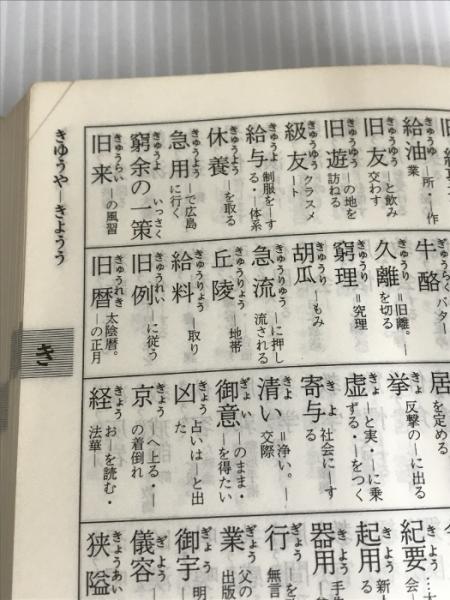 きゅうやーきょうう
き
給油 きゅうゆ ―所・―作業
旧友 きゅうゆう ―と飲み交わす
旧遊 きゅうゆう ―の地を訪ねる
級友 きゅうゆう クラスメート
給与 きゅうよ 制服を―する・―体系
休養 きゅうよう ―を取る
急用 きゅうよう ―で広島に行く
窮余の一策 きゅうよ いっさく
旧来 きゅうらい ―の風習
牛酪 ぎゅうらく バター
久離 きゅうり =旧離。―を切る
窮理 きゅうり =究理
胡瓜 きゅうり ―もみ
急流 きゅうりゅう ―に押し流される
丘陵 きゅうりょう ―地帯
給料 きゅうりょう ―取り
旧例 きゅうれい ―に従う
旧暦 きゅうれき 太陰暦。―の正月
居 を定める
挙 きょ 反撃の―に出る
虚 きょ ―と実・―に乗ずる・―をつく
寄与 きよ 社会に―する
清い きよ =浄い。―交際
御意 ぎょい ―のまま・―を得たい
凶 きょう 占いは―と出た
京 きょう ―へ上る・―の着倒れ
経 きょう お―を読む・法華―
紀要 きよう
起用 きよう 新人
器用 きよう 手先
行 ぎょう 無言
業 ぎょう 父の 出版
御宇 ぎょう 明
儀容 ぎよう
狭隘 きょうあい